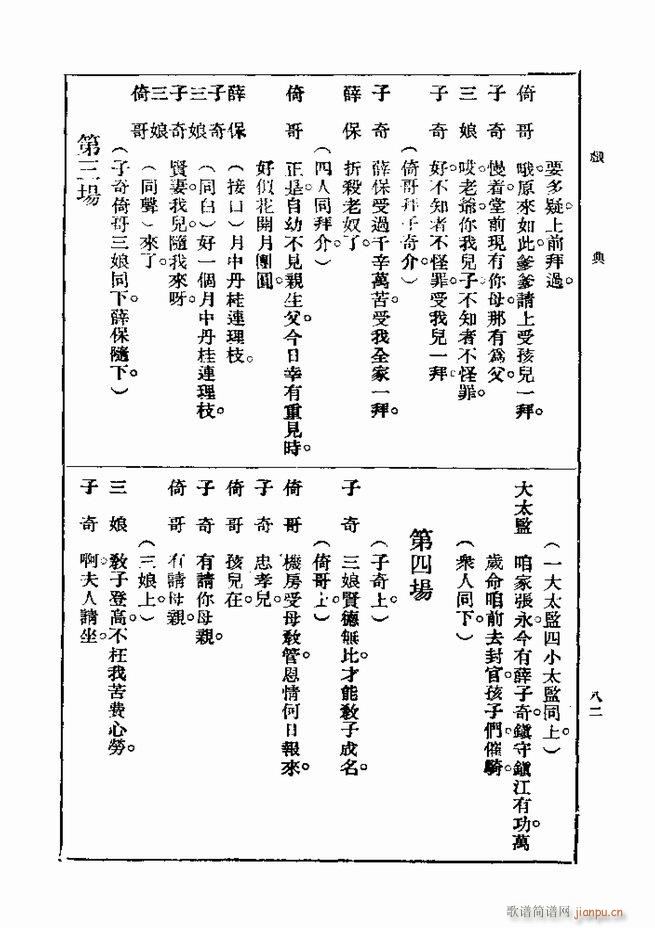 戲典
八二
要多疑。上前拜過。
倚哥 哦。原來如此。爹爹請上受孩兒一拜。
子奇 慢着。堂前現有你母。那有爲父。
三娘 哎。老爺你我兒子。不知者不怪罪。
子奇 好。不知者不怪罪。受我兒一拜。
（倚哥拜子奇介。）
子奇 薛保受過千辛萬苦。受我全家一拜。
薛保 折殺老奴了。
（四人同拜介。）
倚哥 正是自幼不見親生父。今日幸有重見時。
好似花開月團圓。
薛保 （接口）月中丹桂連理枝。
子奇三娘 （同白）好一個月中丹桂連理枝。
子奇 賢妻。我兒隨我來呀。
三娘倚哥 （同聲）來了。
（子奇倚哥三娘同下。薛保隨下。）
第三場
（一大太監四小太監同上。）
大太監 咱家張永。今有薛子奇鎮守鎮江有功。萬
歲命咱前去封官。孩子們。催騎。
（衆人同下。）
第四場
（子奇上。）
子奇 三娘賢德無比。才能教子成名。
（倚哥上。）
倚哥 機房受母教管。恩情何日報來。
子奇 忠孝兒。
倚哥 孩兒在。
子奇 有請你母親。
倚哥 有請母親。
（三娘上。）
三娘 教子登高。不枉我苦費心勞。
子奇 啊。夫人請坐。
歌谱简谱网 jianpu.cn